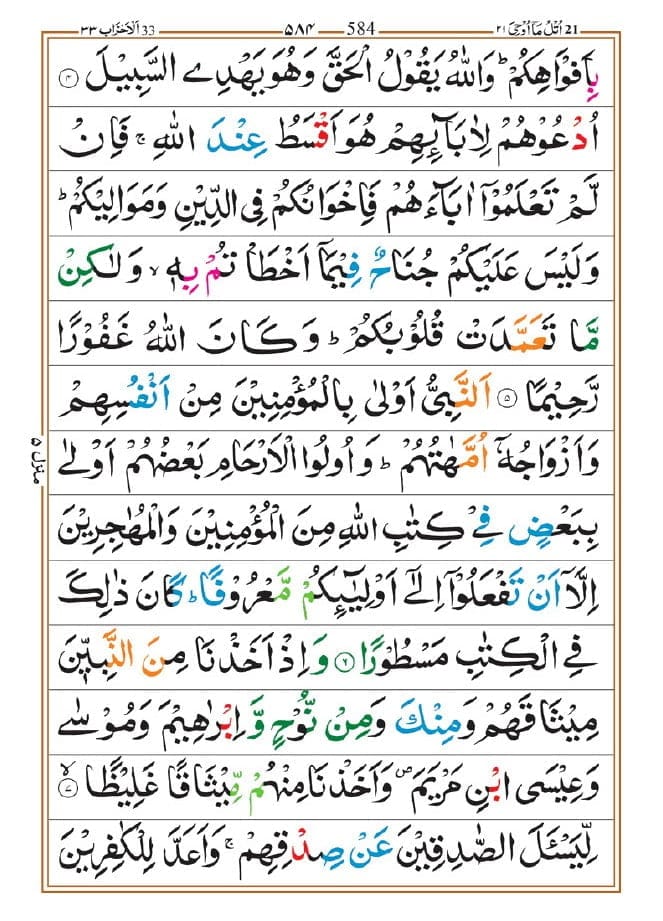 21 اُتْلُ مَآ اُوْحِیَ ٢١ 584 ٥٨٤ 33 اَلْاَحْزَاب ٣٣
بِاَفْوَاهِكُمْ ؕ وَاللّٰهُ يَقُوْلُ الْحَقَّ وَهُوَ يَهْدِى السَّبِيْلَ ۝٤
اُدْعُوْهُمْ لِاٰبَآئِهِمْ هُوَ اَقْسَطُ عِنْدَ اللّٰهِ ۚ فَاِنْ
لَّمْ تَعْلَمُوْۤا اٰبَآءَهُمْ فَاِخْوَانُكُمْ فِى الدِّيْنِ وَمَوَالِيْكُمْ ؕ
وَلَيْسَ عَلَيْكُمْ جُنَاحٌ فِيْمَاۤ اَخْطَاْ تُمْ بِهٖ ۙ وَلٰكِنْ
مَّا تَعَمَّدَتْ قُلُوْبُكُمْ ؕ وَكَانَ اللّٰهُ غَفُوْرًا
رَّحِيْمًا ۝٥ اَلنَّبِىُّ اَوْلٰى بِالْمُؤْمِنِيْنَ مِنْ اَنْفُسِهِمْ
وَاَزْوَاجُهٗۤ اُمَّهٰتُهُمْ ؕ وَاُولُوا الْاَرْحَامِ بَعْضُهُمْ اَوْلٰى
بِبَعْضٍ فِىْ كِتٰبِ اللّٰهِ مِنَ الْمُؤْمِنِيْنَ وَالْمُهٰجِرِيْنَ
اِلَّاۤ اَنْ تَفْعَلُوْۤا اِلٰٓى اَوْلِيٰٓئِكُمْ مَّعْرُوْفًا ؕ كَانَ ذٰلِكَ
فِى الْكِتٰبِ مَسْطُوْرًا ۝٦ وَاِذْ اَخَذْنَا مِنَ النَّبِيّٖنَ
مِيْثَاقَهُمْ وَمِنْكَ وَمِنْ نُّوْحٍ وَّاِبْرٰهِيْمَ وَمُوْسٰى
وَعِيْسَى ابْنِ مَرْيَمَ ۪ وَاَخَذْنَا مِنْهُمْ مِّيْثَاقًا غَلِيْظًا ۙ ۝٧
لِّيَسْئَلَ الصّٰدِقِيْنَ عَنْ صِدْقِهِمْ ۚ وَاَعَدَّ لِلْكٰفِرِيْنَ
منزل ٥